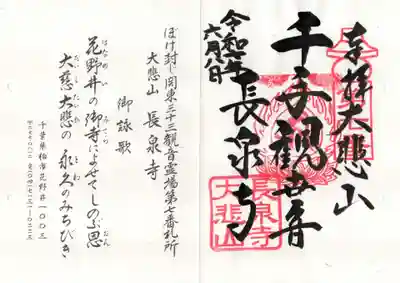 奉拝 大悲山
千手観世音
長泉寺
六月八日
長泉寺
大悲山
ぼけ封じ関東三十三観音霊場第七番札所
大悲山 長泉寺
御詠歌
花野井の御寺によせてしのぶ思
大慈大悲の 永久のみちびき
千葉県柏市花野井一〇〇三